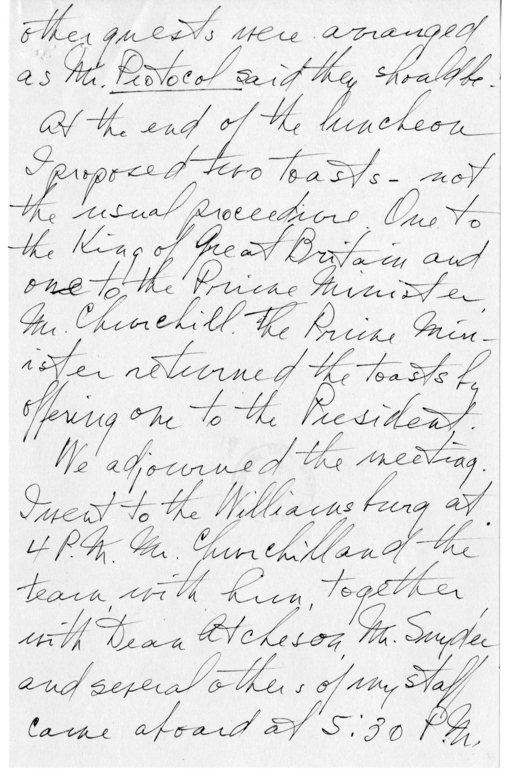 other guests were arranged
as Mr. Protocol said they should be.
At the end of the luncheon
I proposed two toasts - not
the usual proceedure. One to
the King of Great Britain and
one to the Prime Minister,
Mr. Churchill. The Prime Min-
ister returned the toasts by
offering one to the President.
We adjourned the meeting.
I went to the Williamsburg at
4 P.M. Mr. Churchill and the
team with him, together
with Dean Atcheson, Mr. Snyder
and several others of my staff
came aboard at 5:30 P.M.